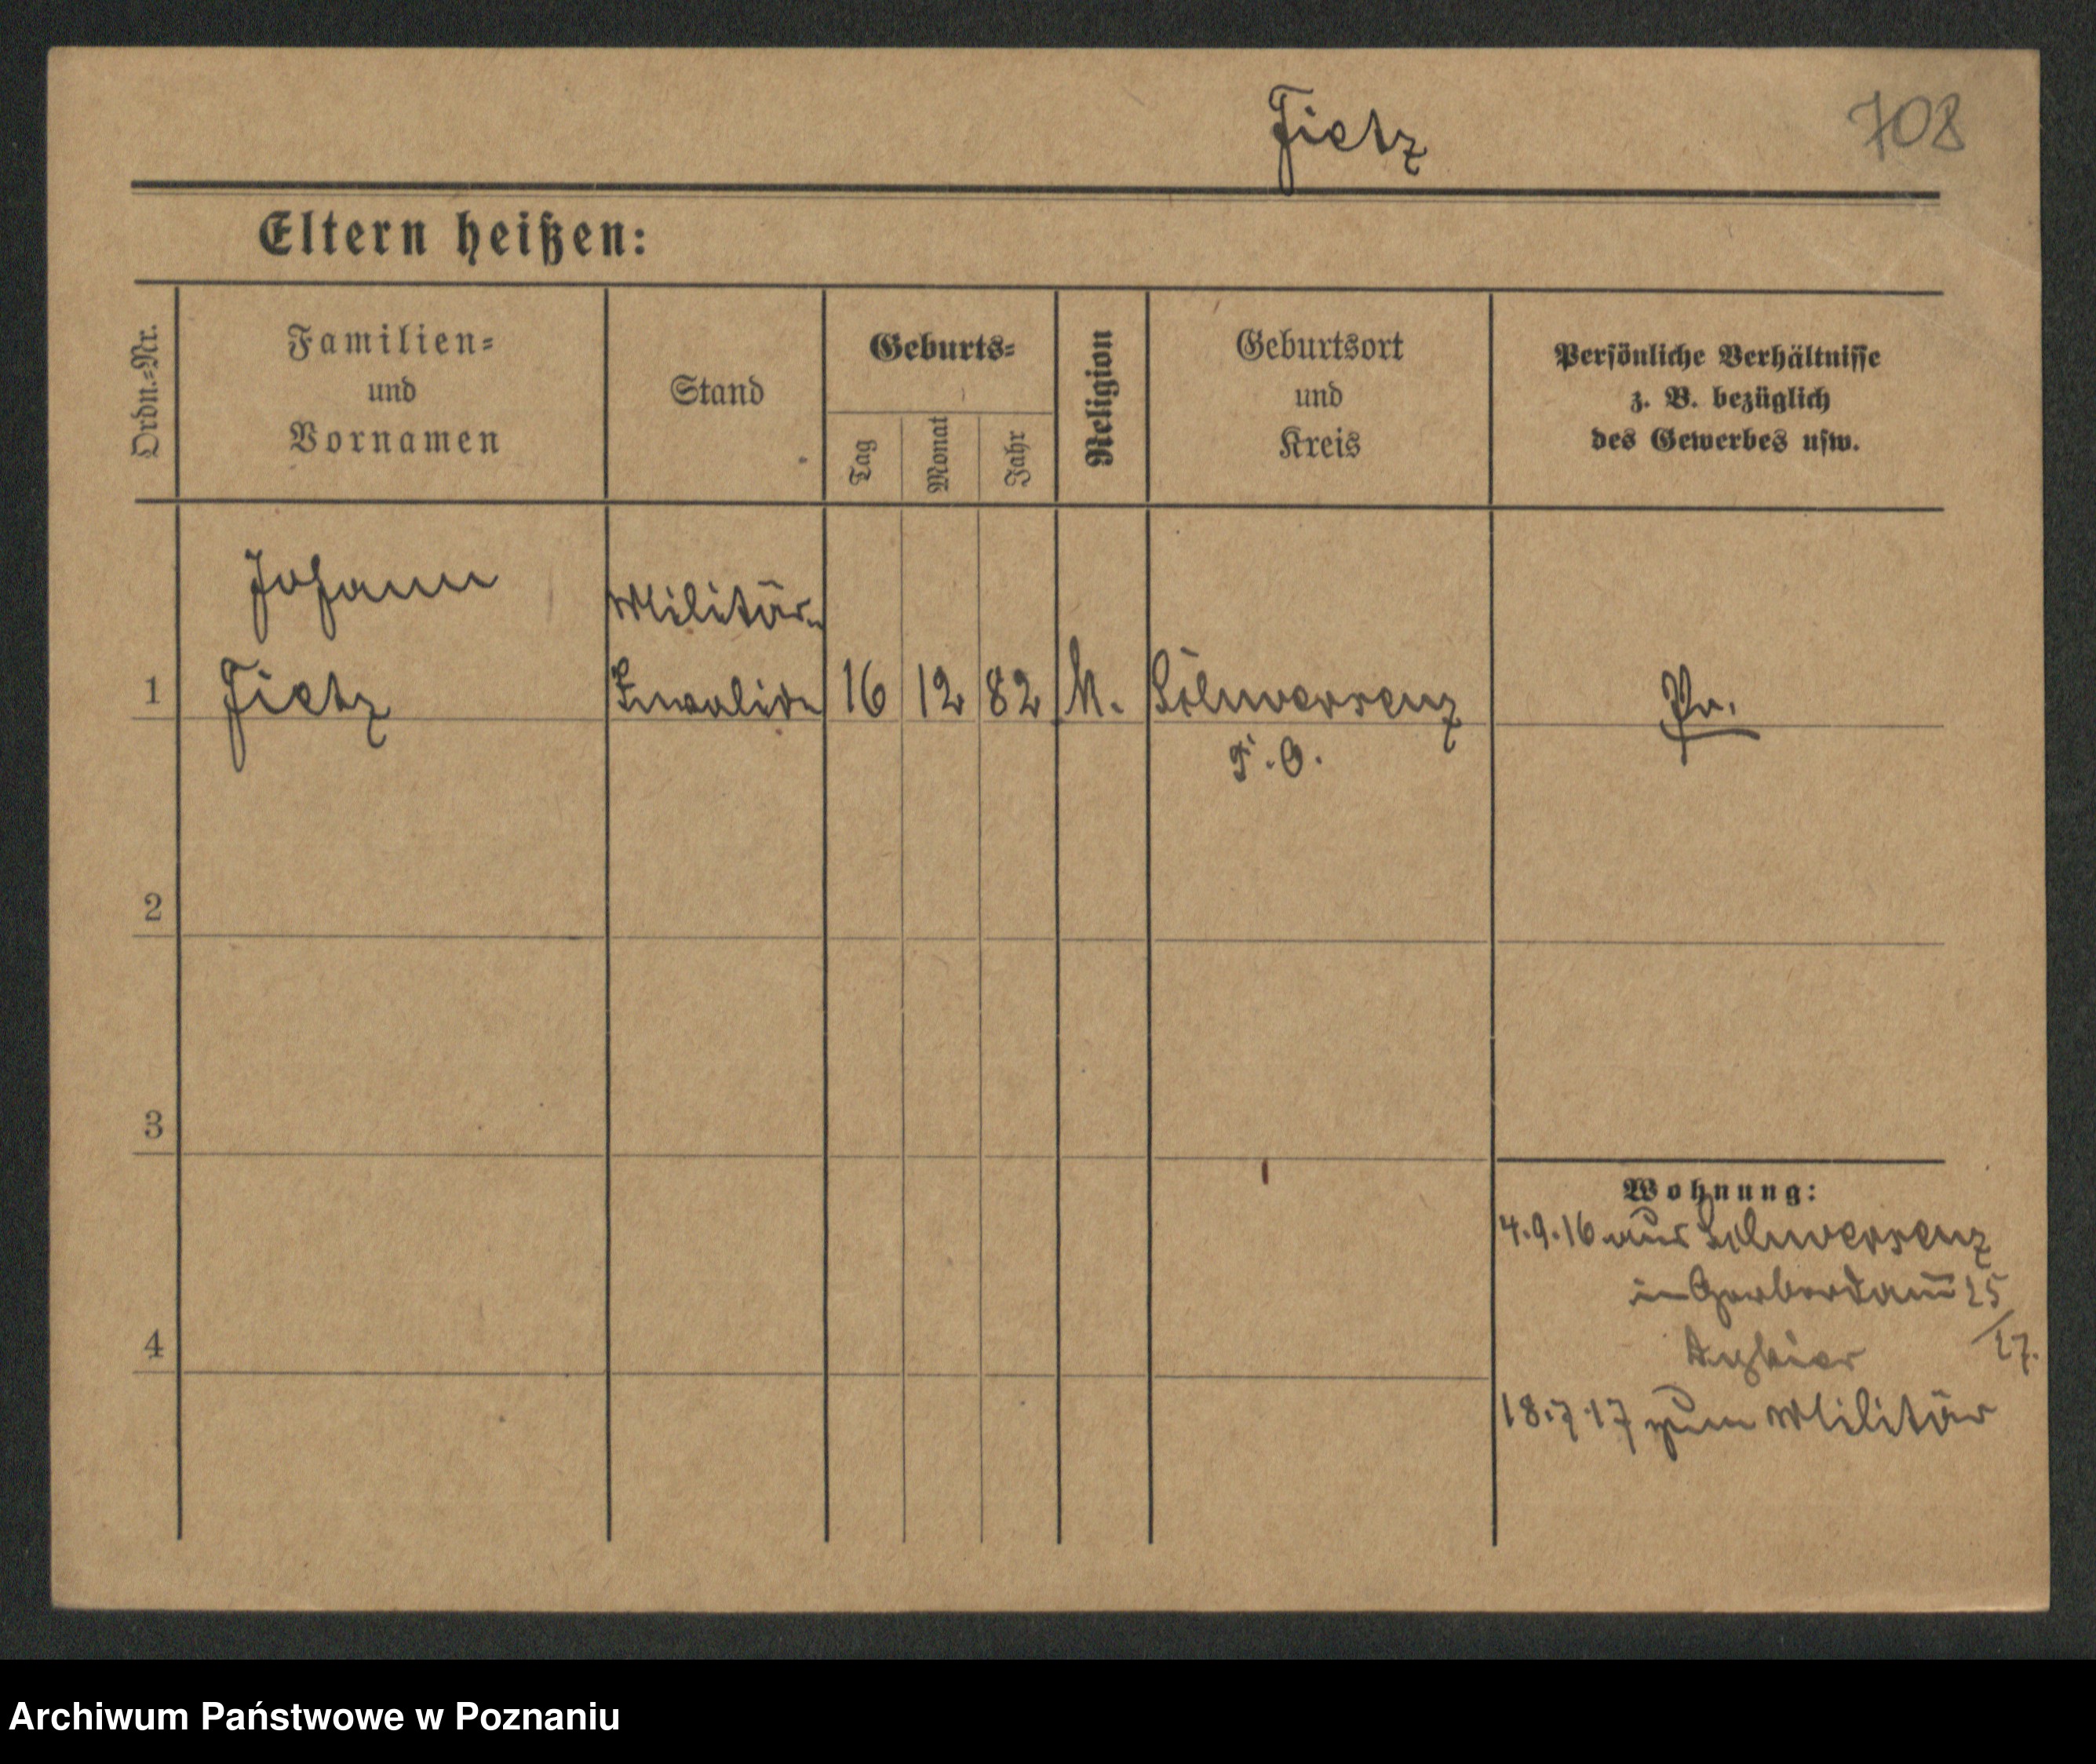 Fietz
708
Eltern heißen:
Ordn.=Nr.
Familien=
und
Vornamen
Stand
Geburts=
Tag
Monat
Jahr
Religion
Geburtsort
und
Kreis
Persönliche Verhältnisse
z. B. bezüglich
des Gewerbes usw.
Johann
Militär
1
Fietz
Invalide
16
12
82
k.
Schwersenz
P. O.
Pr.
2
3
4
Wohnung:
4.9.16 aus Schwersenz
in Gerberdam̅ 15
/17.
18.7.17 zum Militär
Archiwum Państwowe w Poznaniu